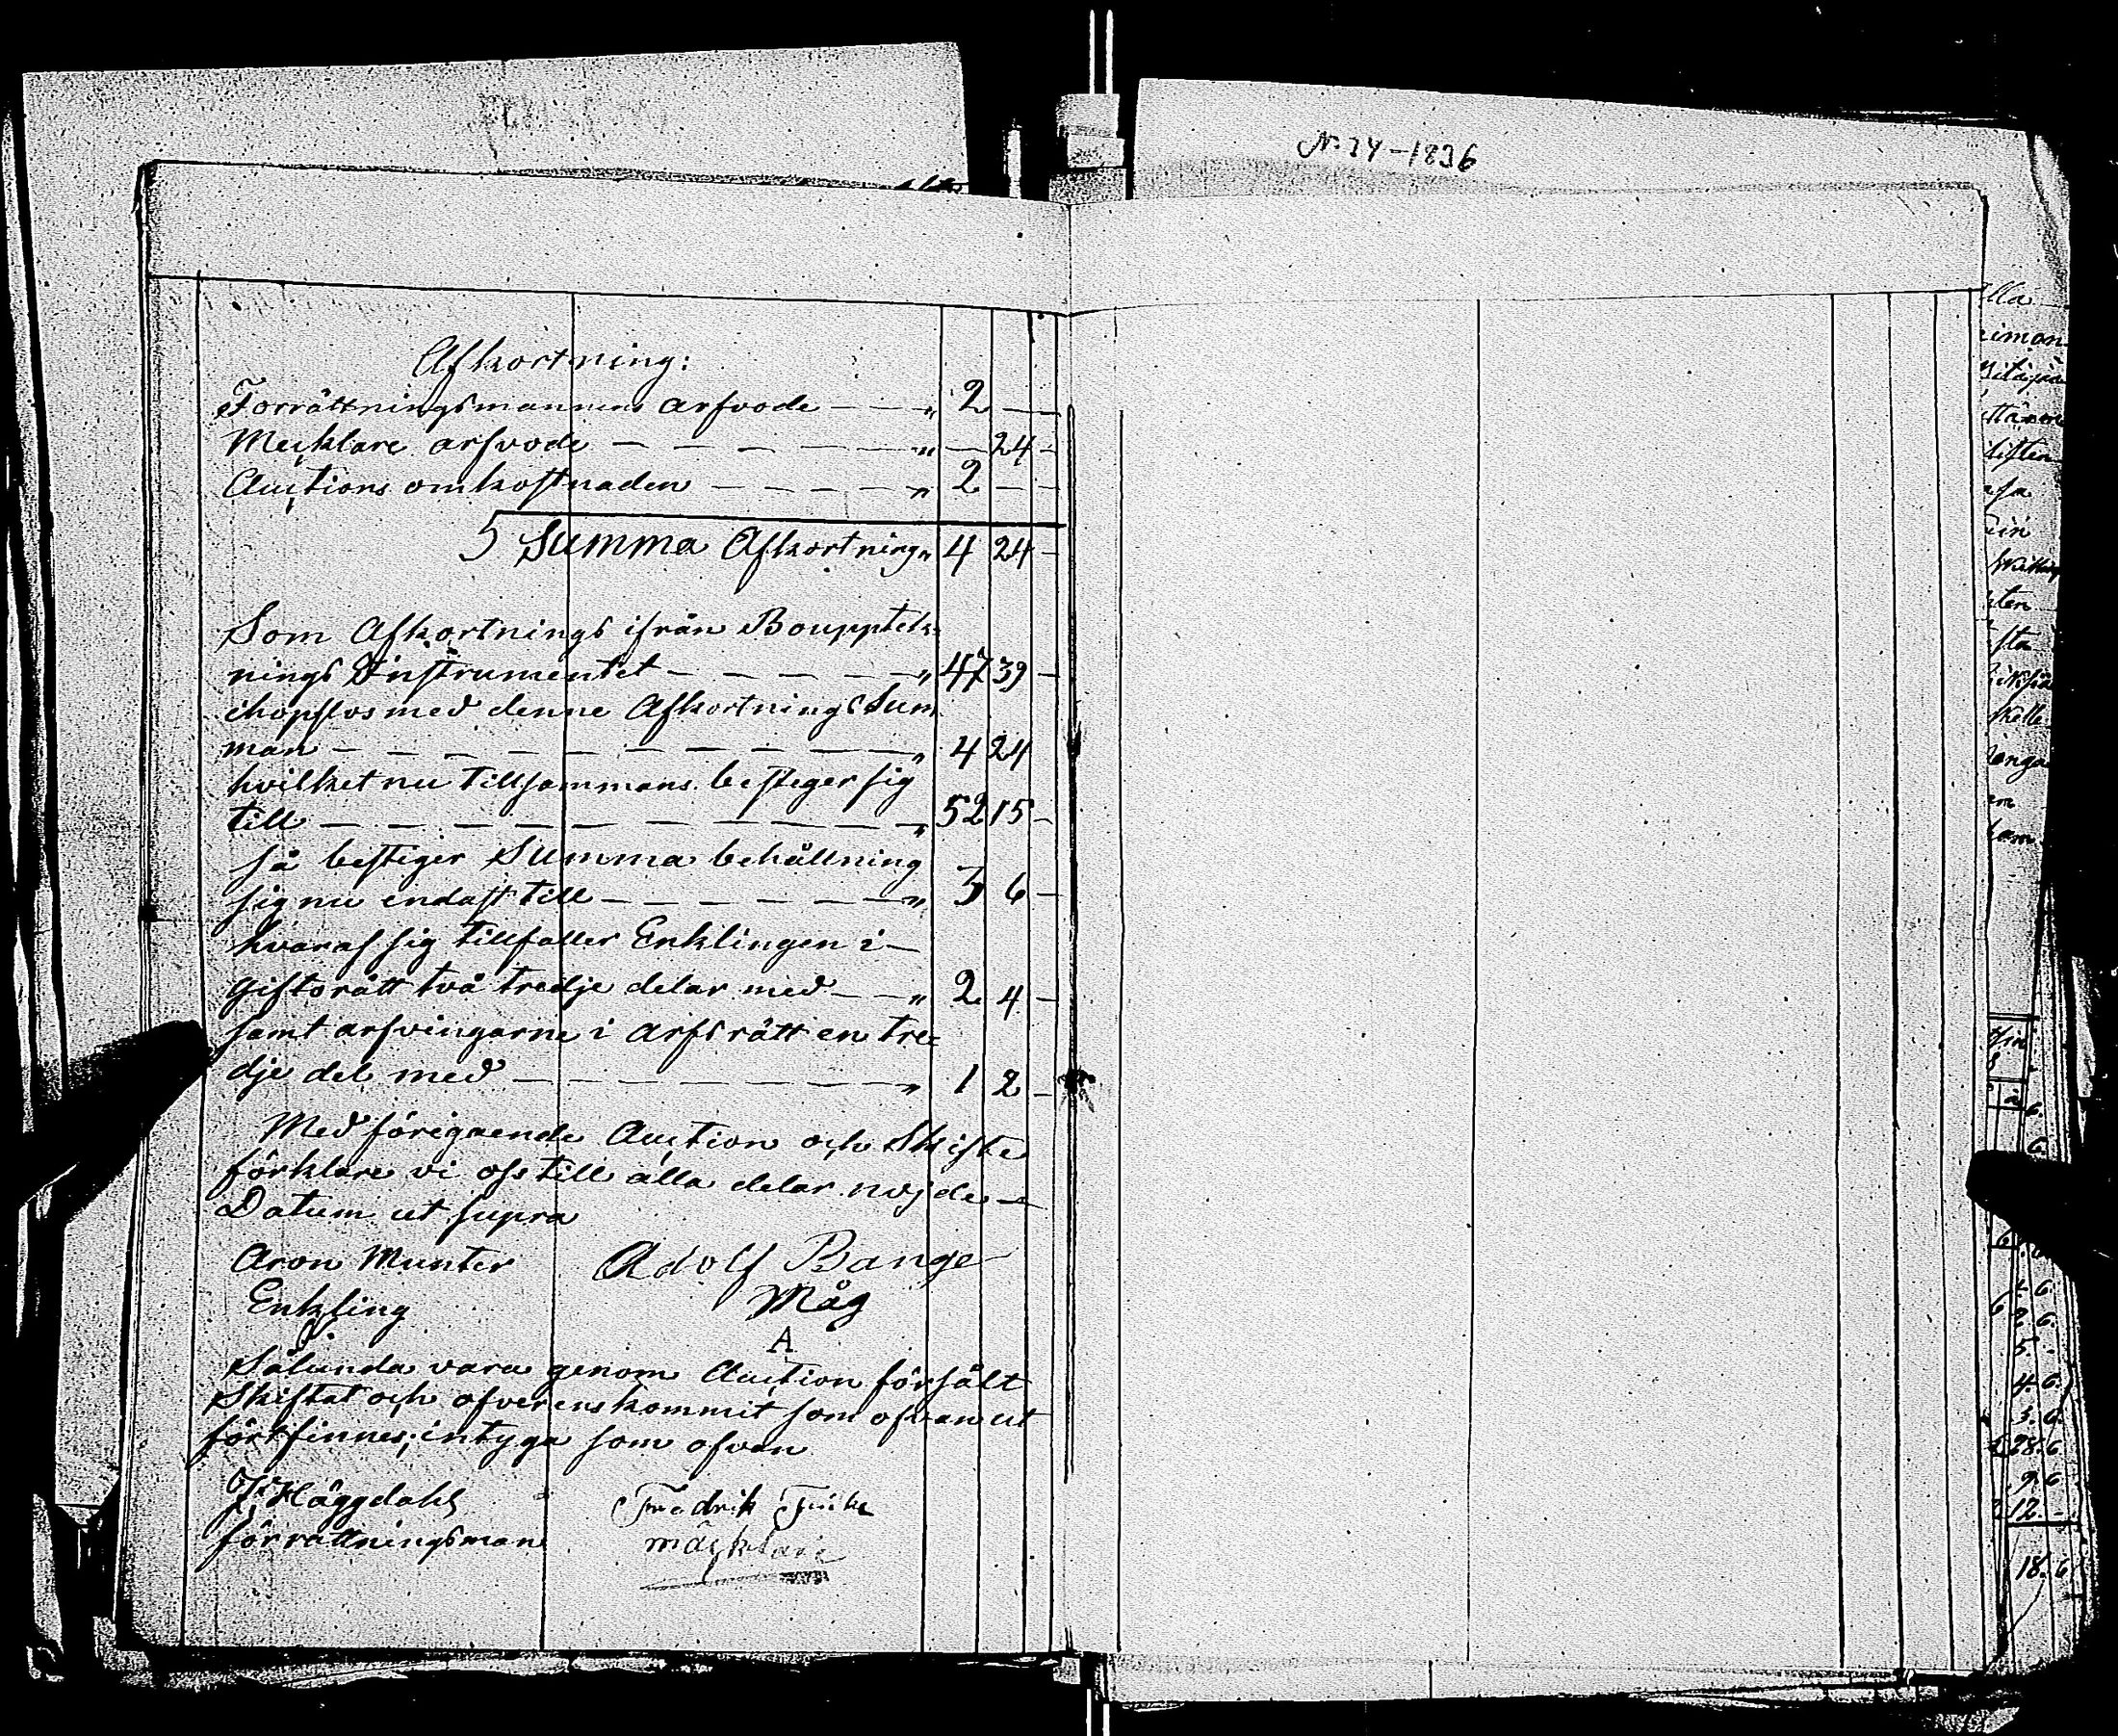 N:24-1836
Afkortning:
Förrättningsmannens arfvode — — „ 2 —
Mecklare arfvode — — — — „ — 24 —
Auctions omkostnaden — — — — — „ 2 —
Summa Afkortning „ 4 24 —
Som Afkortnings ifrån Boupptek-
nings Instrumentet — — — — — „ 47 39 —
ihopslos med denne Afkortnings Sum
man — — — — — — — — — „ 4 24
hvilket nu tillsammans bestiger sig
till — — — — — — — — — „ 52 15 —
så bestiger Summa behållning
sig nu endast till — — — — — — „ 3 6 —
hvaraf sig tillfaller Enklingen i —
Giftorätt två tredje delar med — — „ 2 4 —
samt arfvingarne i arfsrätt en tre=
dje del med — — — — — — — „ 1 2 —
Med förigaende Auction och Skifte
förklare vi oss till alla delar nöjde —
Datum ut supra
Aron Munter Adolf Bange
Enkling Måg
A
Sålunda vara genom Auction försålt
Skiftat och öfverenskommit som ofvan ut
fört finnes; intyga som ofvan
J. Häggdahl Fredrik
förrättningsman mäcklare
lla
ten
sta
am
6
5. -
4. 6.
3. 6.
28. 6
9. 6
12. -
18. 6